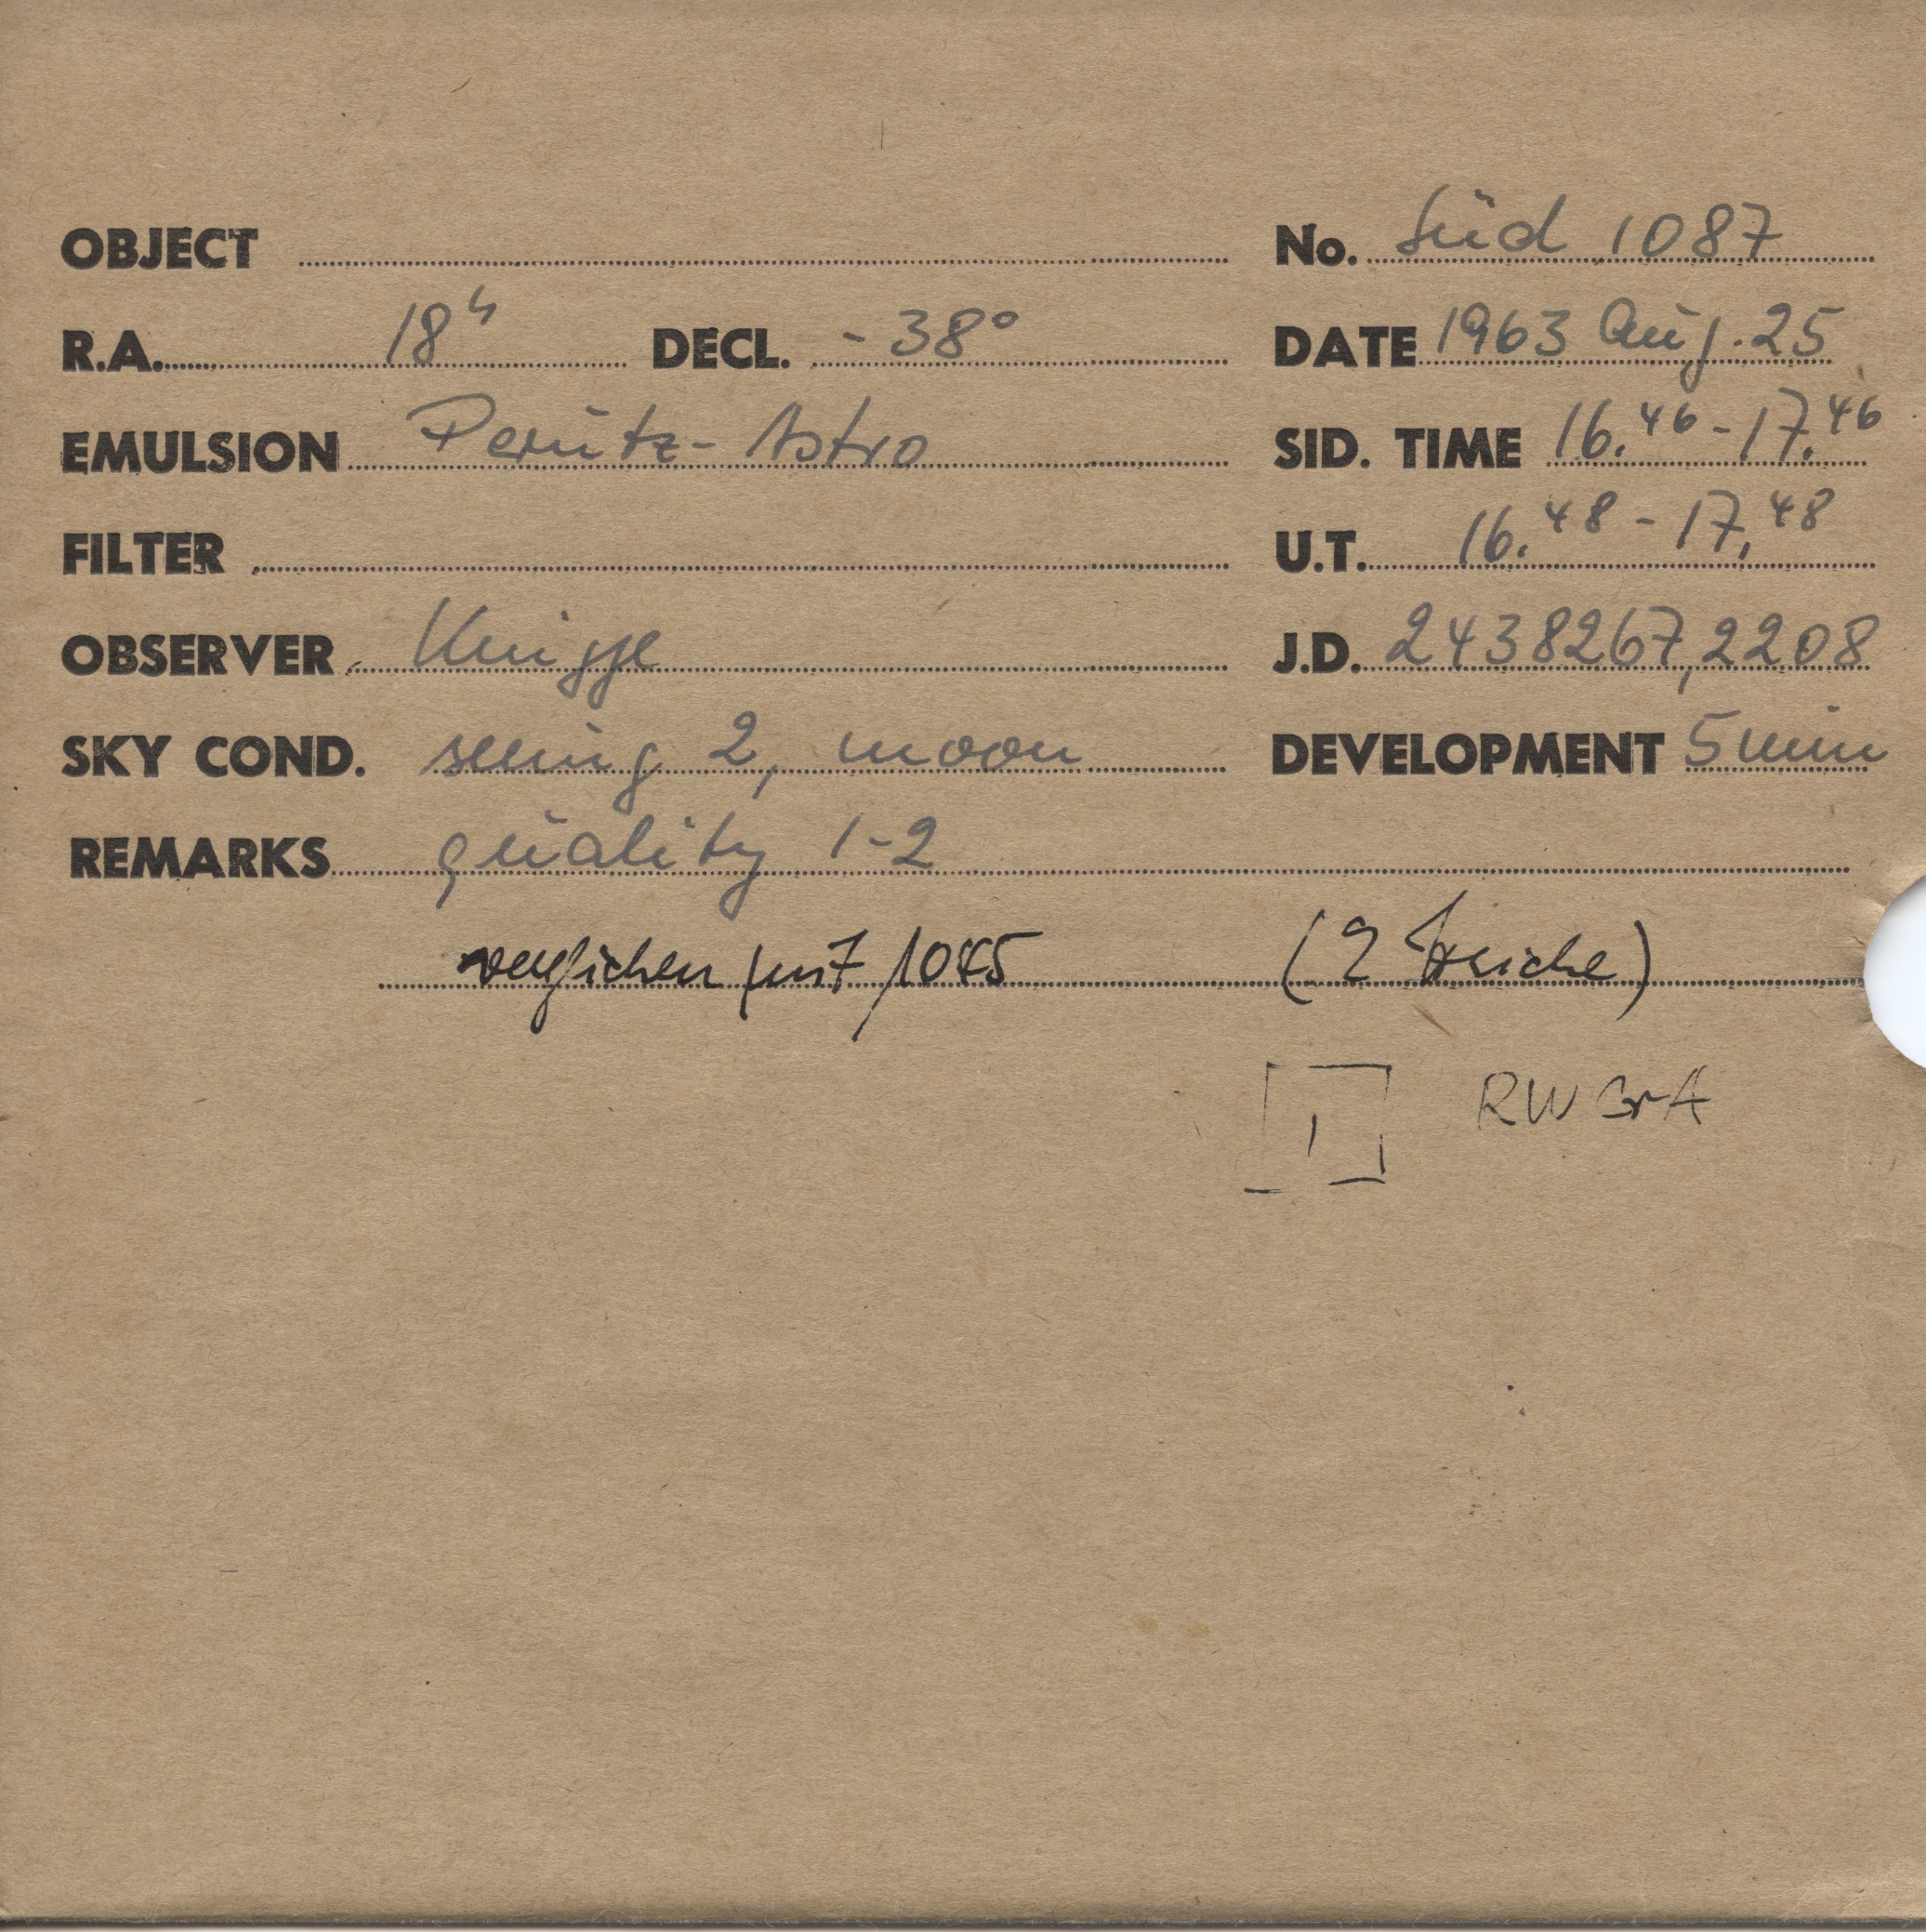 OBJECT No. Süd 1087
R.A. 18h DECL. -38° DATE 1963 Aug. 25
EMULSION Perutz-Astro SID. TIME 16.46 - 17.46
FILTER U.T. 16.48 - 17.48
OBSERVER Knigge J.D. 2438267,2208
SKY COND. seeing 2, moon DEVELOPMENT 5 min
REMARKS quality 1-2
verglichen mit (2 Striche)
RW CrA